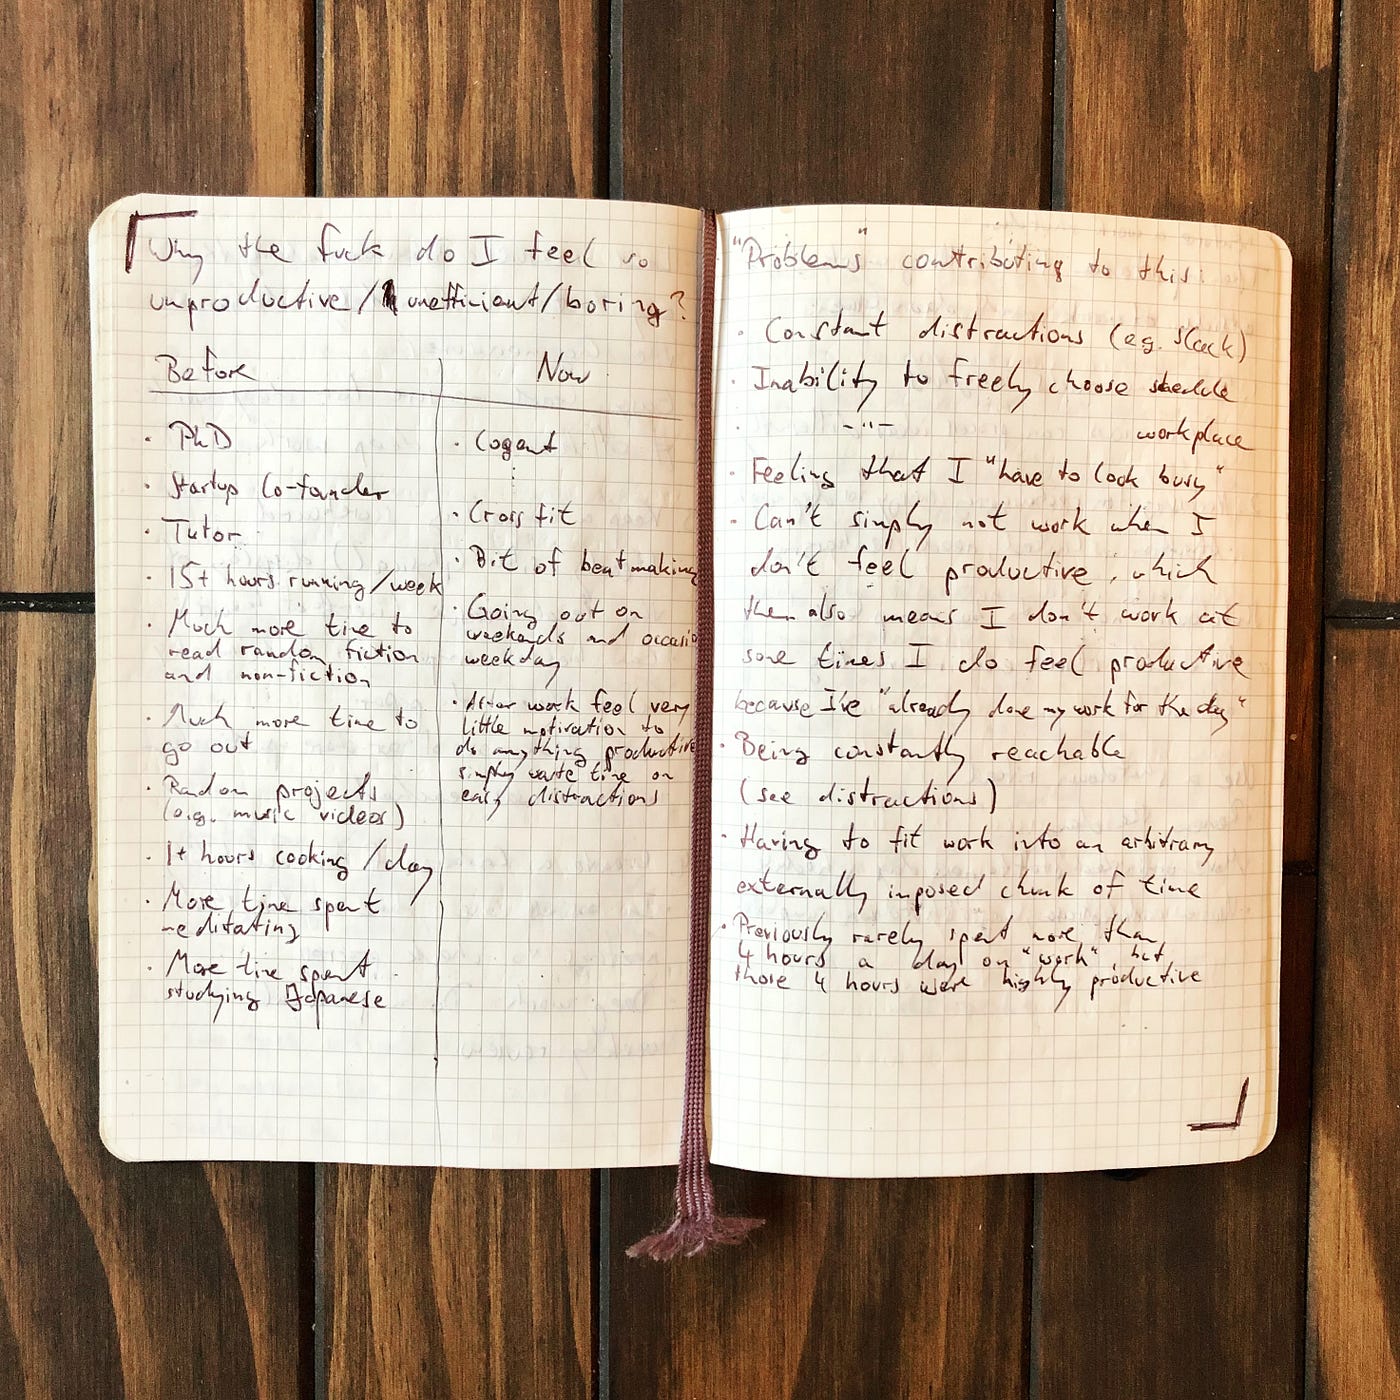 Why the fuck do I feel so
unproductive / unefficient/boring?
Before
· PhD
· Startup Co-founder
· Tutor
· 15+ hours running/week
· Much more time to
read random fiction
and non-fiction
· Much more time to
go out
· Random projects
(e.g. music videos)
· 1+ hours cooking /day
· More time spent
meditating
· More time spent
studying Japanese
Now
· Cogent
· Crossfit
· Bit of beatmaking
· Going out on
weekends and occasio
weekday
· After work feel very
little motivation to
do anything productive
simply waste time on
easy distractions
"Problems" contributing to this:
· Constant distractions (eg. Slack)
· Inability to freely choose schedule
· -"- workplace
· Feeling that I "have to look busy"
· Can't simply not work when I
don't feel productive, which
then also means I don't work at
some times I do feel productive
because I've "already done my work for the day"
· Being constantly reachable
(see distractions)
· Having to fit work into an arbitrary
externally imposed chunk of time
· Previously rarely spent more than
4 hours a day on "work", but
those 4 hours were highly productive